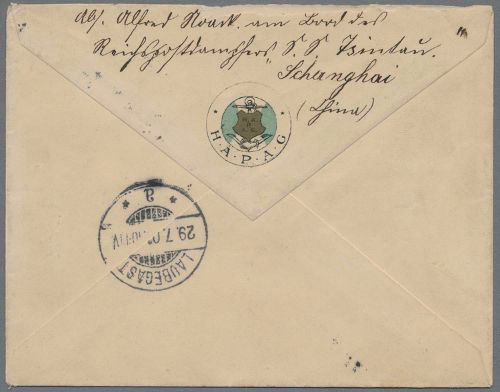 Abs. Alfred Noack am Bord des
Reichspostdampfers S. S Tsintau.
Schanghai
(China)
* H · A · P · A · G *
* a *
29.7.0
LAUBEGAST